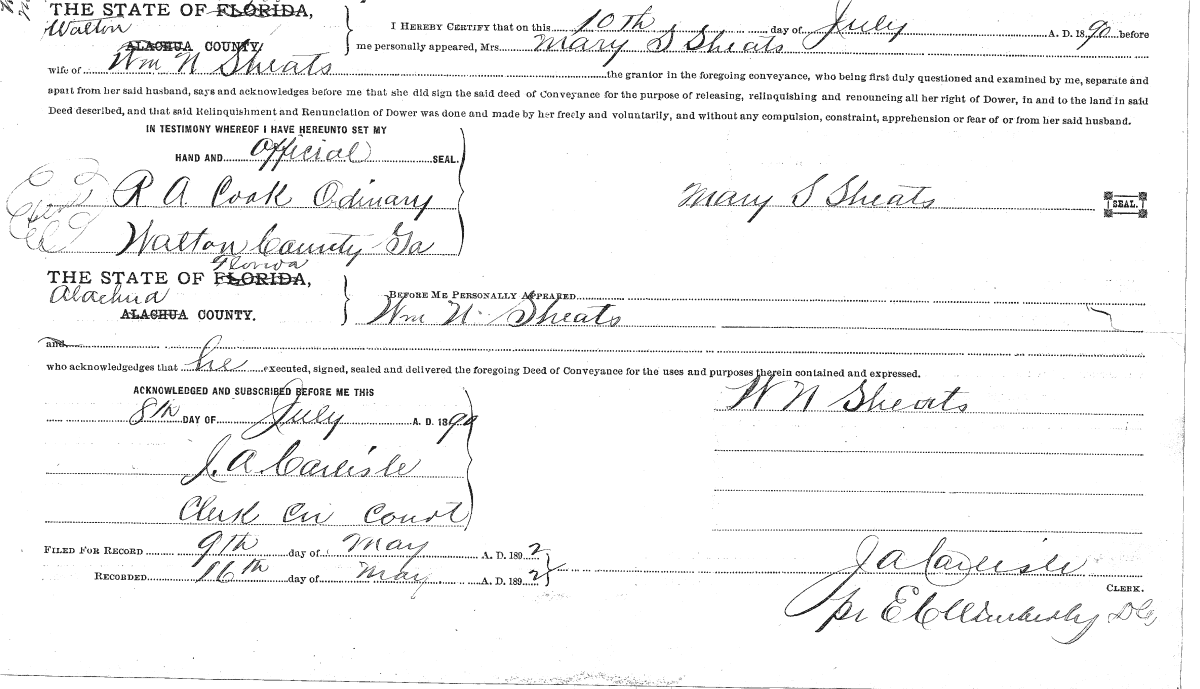 THE STATE OF FLORIDA,
Walton
ALACHUA COUNTY
I HEREBY CERTIFY that on this 10th day of July A. D. 1890 before
me personally appeared, Mrs. Mary S Sheats
wife of Wm N Sheats the grantor in the foregoing conveyance, who being first duly questioned and examined by me, separate and
apart from her said husband, says and acknowledges before me that she did sign the said deed of Conveyance for the purpose of releasing, relinquishing and renouncing all her right of Dower, in and to the land in said
Deed described, and that said Relinquishment and Renunciation of Dower was done and made by her freely and voluntarily, and without any compulsion, constraint, apprehension or fear of or from her said husband.
IN TESTIMONY WHEREOF I HAVE HEREUNTO SET MY
HAND AND Official SEAL.
R A Cook Odinary
Mary S Sheats SEAL.
Walton County Ga
Florida
THE STATE OF FLORIDA,
Alachua
ALACHUA COUNTY.
BEFORE ME PERSONALLY APPEARED
Wm N. Sheats
and
who acknowledgedges that he executed, signed, sealed and delivered the foregoing Deed of Conveyance for the uses and purposes therein contained and expressed.
ACKNOWLEDGED AND SUBSCRIBED BEFORE ME THIS
W N Sheats
8th DAY OF July A. D. 1890
J. A Carlisle
Clerk Cir Court
FILED FOR RECORD 9th day of May A. D. 1892
RECORDED 16th day of May A. D. 1892
J A Carlisle
CLERK.
pr E C Wimberly